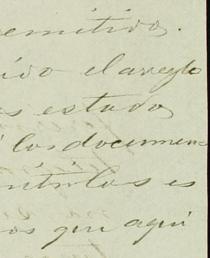 remitido.
ido el areglo
es estado
los documen
entrelos es
os que aqui